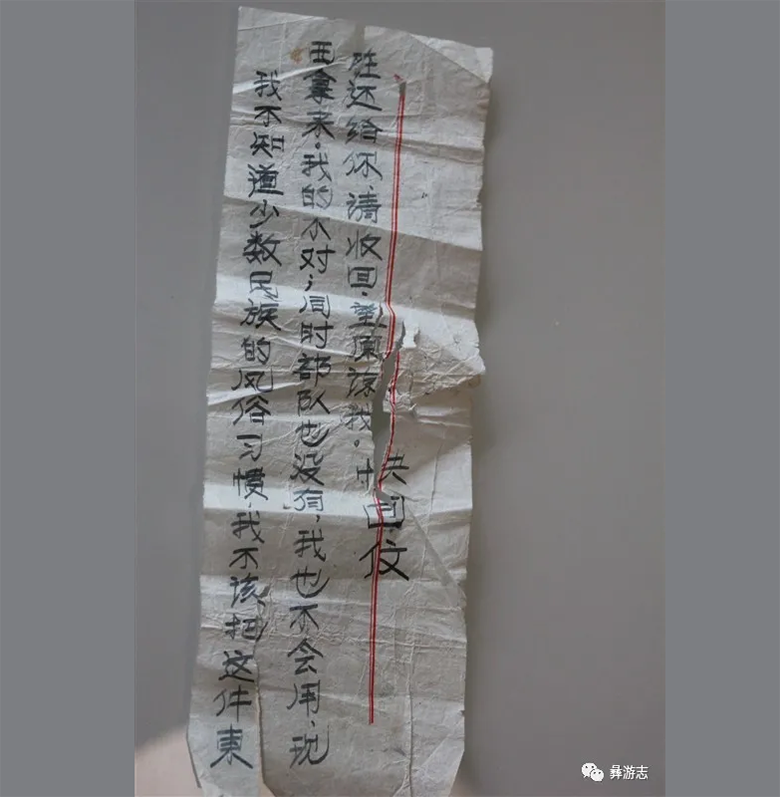 我不知道少数民族的风俗习惯,我不该把这件東
西拿来。我的不对;同时部队也没有,我也不会用,现
在还给你,请收回.望原谅我。
快回伩
彝游志